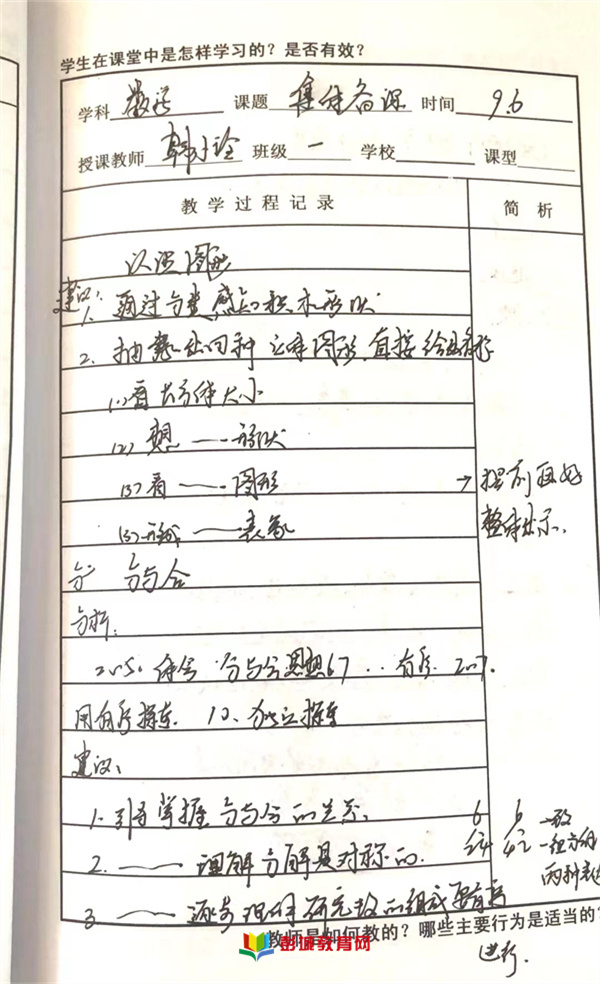 学生在课堂中是怎样学习的？是否有效？
学科 数学 课题 集体备课 时间 9.6
授课教师 韩 玲 班级 一 学校 课型
教学过程记录 简析
认识图形
建议：
1. 通过分类,感知积木形状
2. 抽象出四种立体图形,直接给出名称
(1) 看 大小
(2) 想 —— 形状
(3) 看 —— 图形
(3) 形成 —— 表象
→ 提前画好
整体出示.
分与合
分析:
2.~5. 体会 分与合思想 67 .. 有序 2~7.
用有序探索 10、独立探索
建议:
1. 引导掌握分与合的关系.
2. —— 理解分解是对称的.
3 —— 逐步理解研究数的组成要有序
进行.
6 6
2 4 4 2
一致
一组分合
两种表达
彭城教育网
教师是如何教的？哪些主要行为是适当的？